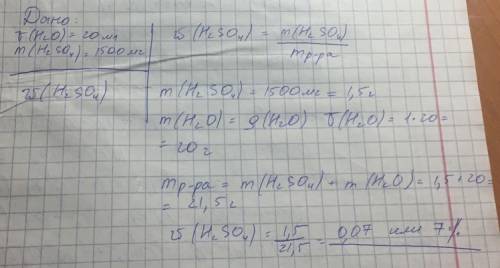 Дано:
V(H₂O) = 20 мл
m(H₂SO₄) = 1500 мг
ω(H₂SO₄)
ω(H₂SO₄) = m(H₂SO₄) / mр-ра
m(H₂SO₄) = 1500 мг = 1,5 г
m(H₂O) = ρ(H₂O) V(H₂O) = 1·20 =
= 20 г
mр-ра = m(H₂SO₄) + m(H₂O) = 1,5 + 20 =
= 21,5 г
ω(H₂SO₄) = 1,5 / 21,5 = 0,07 или 7%